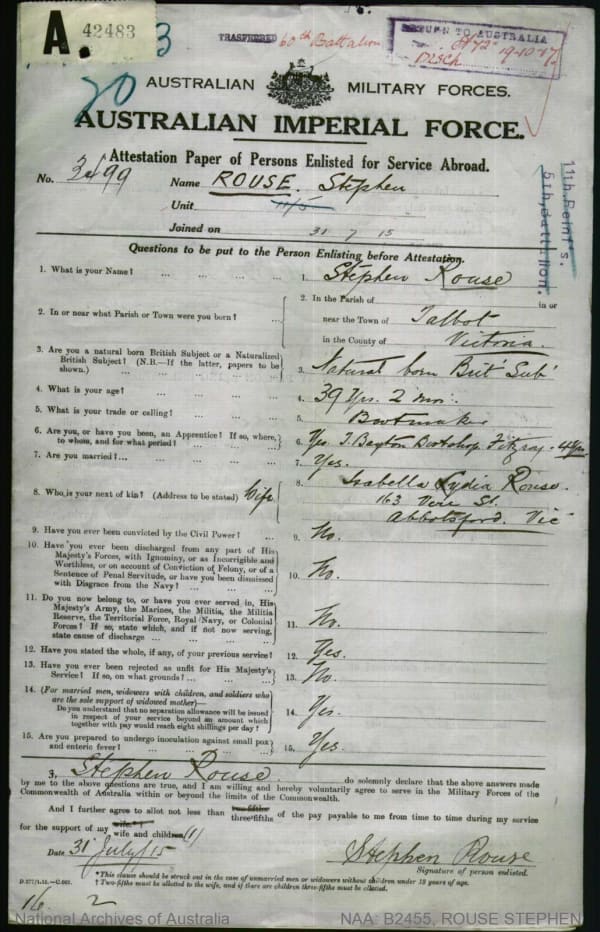 A. 42483
3
20
TRANSFERRED 60th Battalion
RETURN TO AUSTRALIA
DISCH 19-10-17.
AUSTRALIAN MILITARY FORCES.
AUSTRALIAN IMPERIAL FORCE.
Attestation Paper of Persons Enlisted for Service Abroad.
No. 3499 Name ROUSE. Stephen
Unit 11/5
Joined on 31 7 15
11th Reinf's.
5th Battalion.
Questions to be put to the Person Enlisting before Attestation.
1. What is your Name? ... ... ... ... 1. Stephen Rouse
2. In or near what Parish or Town were you born? ... 2. In the Parish of in or
near the Town of Talbot
in the County of Victoria.
3. Are you a natural born British Subject or a Naturalized
British Subject? (N.B.—If the latter, papers to be
shown.) ... ... ... ... 3. Natural born Brit Sub
4. What is your age? ... ... ... ... 4. 39 Yrs. 2 mos.
5. What is your trade or calling? ... ... ... 5. Bootmaker
6. Are you, or have you been, an Apprentice? If so, where,
to whom, and for what period? ... ... ... 6. Yes. Bootshop Fitzroy - 4 Yrs.
7. Are you married?... ... ... ... ... 7. Yes.
8. Who is your next of kin? (Address to be stated) Wife 8. Isabella Lydia Rouse.
163 Vere St.
Abbotsford. Vic
9. Have you ever been convicted by the Civil Power? ... 9. No.
10. Have you ever been discharged from any part of His
Majesty's Forces, with Ignominy, or as Incorrigible and
Worthless, or on account of Conviction of Felony, or of a
Sentence of Penal Servitude, or have you been dismissed
with Disgrace from the Navy? ... ... ... 10. No.
11. Do you now belong to, or have you ever served in, His
Majesty's Army, the Marines, the Militia, the Militia
Reserve, the Territorial Force, Royal Navy, or Colonial
Forces? If so, state which, and if not now serving,
state cause of discharge ... ... ... 11. No.
12. Have you stated the whole, if any, of your previous service? 12. Yes.
13. Have you ever been rejected as unfit for His Majesty's
Service? If so, on what grounds? ... ... ... 13. No.
14. (For married men, widowers with children, and soldiers who
are the sole support of widowed mother)—
Do you understand that no separation allowance will be issued
in respect of your service beyond an amount which
together with pay would reach eight shillings per day? 14. Yes.
15. Are you prepared to undergo inoculation against small pox
and enteric fever? ... ... ... ... 15. Yes.
3, Stephen Rouse do solemnly declare that the above answers made
by me to the above questions are true, and I am willing and hereby voluntarily agree to serve in the Military Forces of the
Commonwealth of Australia within or beyond the limits of the Commonwealth.
And I further agree to allot not less than two-fifths three-fifths of the pay payable to me from time to time during my service
for the support of my wife* wife and children (1)
Date 31 July/15
Stephen Rouse
Signature of person enlisted.
*This clause should be struck out in the case of unmarried men or widowers without children under 18 years of age.
† Two-fifths must be allotted to the wife, and if there are children three-fifths must be allotted.
16 2
National Archives of Australia NAA: B2455, ROUSE STEPHEN